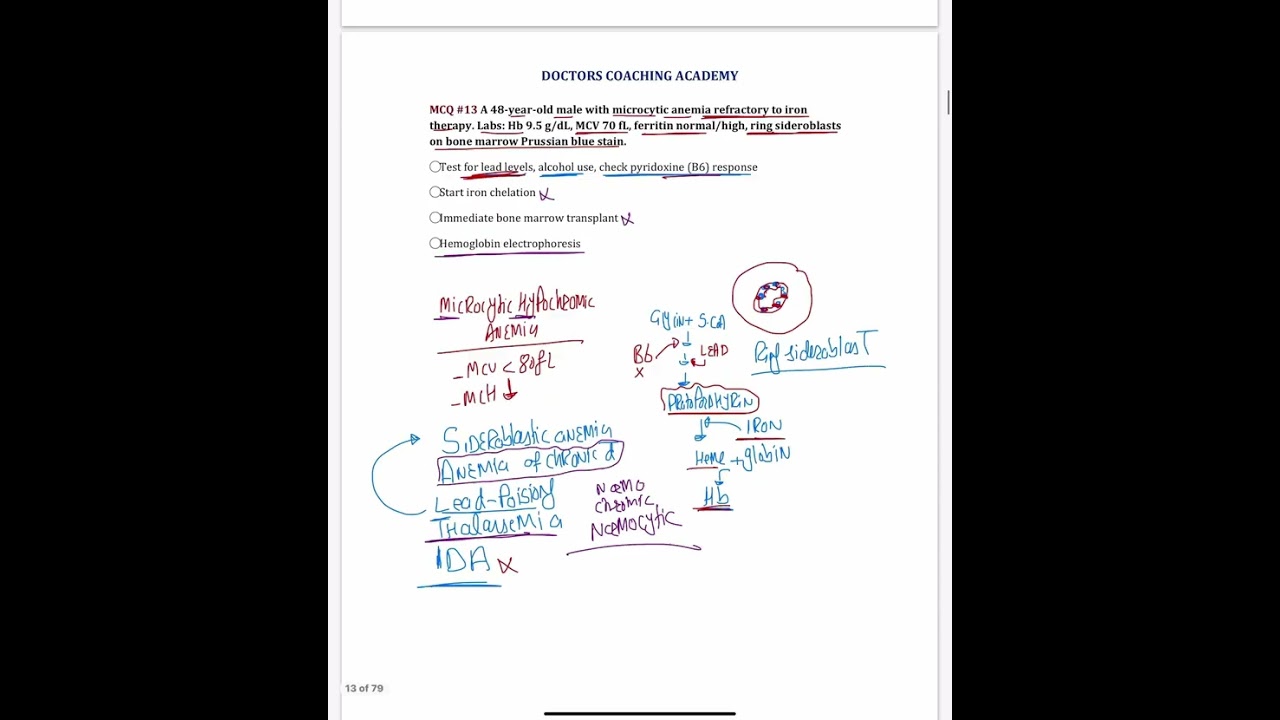 DOCTORS COACHING ACADEMY
MCQ #13 A 48-year-old male with microcytic anemia refractory to iron
therapy. Labs: Hb 9.5 g/dL, MCV 70 fL, ferritin normal/high, ring sideroblasts
on bone marrow Prussian blue stain.
Test for lead levels, alcohol use, check pyridoxine (B6) response
Start iron chelation
Immediate bone marrow transplant
Hemoglobin electrophoresis
Microcytic Hypochromic
Anemia
- MCV < 80fL
- MCH ↓
Sideroblastic anemia
Anemia of chronic d
Lead-Poisiony
Thalassemia
IDA x
Normo
chromic
Normocytic
Glycin + S.CoA
B6
x
LEAD
Protoporphyrin
IRON
Heme + globin
Hb
Ring sideroblast
13 of 79